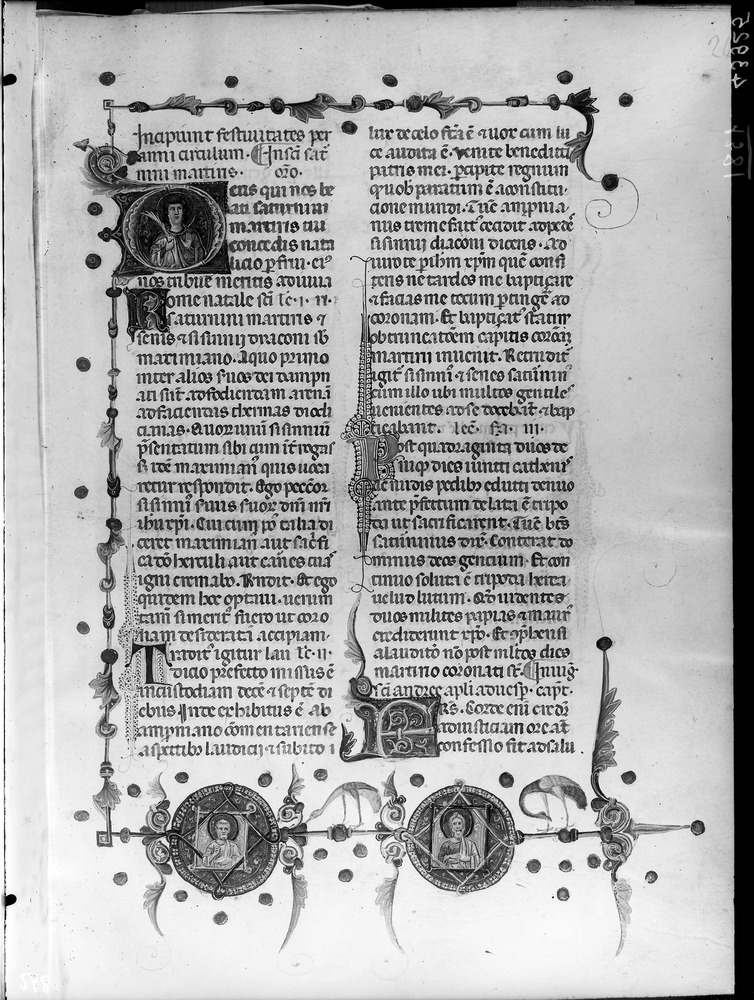 Incipiunt festiuitates per
anni circulum. In sc̄i sat
nini martiris. oro.
Deus qui nos be
ati saturnini
martiris tui
concedis nata
licio ꝑfrui. eiꝰ
nos tribue meritis adiuua
Rome natale sc̄i lc̄. i.
saturnini martiris ⁊
senis ⁊ sisinnij diaconi sb
maximiano. A quo primo
inter alios suos dei dampn
ati sūt ad fodiendam arenā
ad faciendas thermas diocli
cianas. Quorum sisinniū
p̄sentatum sibi cum īt̄rogas
s; idē maximianꝰ quis uoca
retur respondit. Ego peccōr
sisinniꝰ seruus seruor̄ dn̄i nr̄i
ihu xp̄i. Cui cum
ceret maximianꝰ aut sac̄fi
ca dō herculi aut carnes tuas
igni cremabo. Rn̄dit. Et ego
quidem hoc optaui. uerum
tam̄ si meritꝰ fuero ut coro
nam desideratā accipiam.
Tradit̄ igitur lau lc̄. ii.
dicio prefecto missus ē
in custodiam decē ⁊ septē di
ebus. Inde exhibitus ē ab
ampniano comentariense
aspectibꝫ laudicii ⁊ subito
lux de celo fc̄a ē ⁊ uox cum lu
ce audita ē. Venite benedicti
patris mei. percipite regnum
quod paratum ē a constitu
cione mundi. Tūc ampnia
nus tremefactꝰ cecidit ad pedes
sisinnij diaconi dicens. Ad
iuro te ꝑ ihm xp̄m quē confi
teris ne tardes me baptiçare
⁊ facias me tecum ꝑtingē ad
coronam. Et baptiçatꝰ statim
obtruncatōem capitis
martirii inuenit. Retrudit̄
igit̄ sisinniꝰ ⁊ senes saturninꝰ
cum illo ubi multos gentiles
uenientes ad se docebāt ⁊ bap
ticabant. lec̄. iii.
Post quadraginta duos de
niqꝫ dies iuncti cathenis
⁊ nudis pedibꝫ educti denuo
ante p̄fectum delata ē tripo
da ut sacrificarent. Tūc bc̄s
saturninus dix̄. Conterat do
minus deos gencium. Et con
tinuo soluta ē tripoda herea
uelud lutum. Qd̄ uidentes
duos milites papias ⁊ maurꝰ
crediderunt xp̄o. Et
a laudicio nō post mltos dies
martirio coronati st̄. In uigꝰ
sc̄i andree apli ad uesp̄. capt.
Fr̄s. Corde enī credit̄
ad iusticiam ore aūt
confessio fit ad salu
43925
242